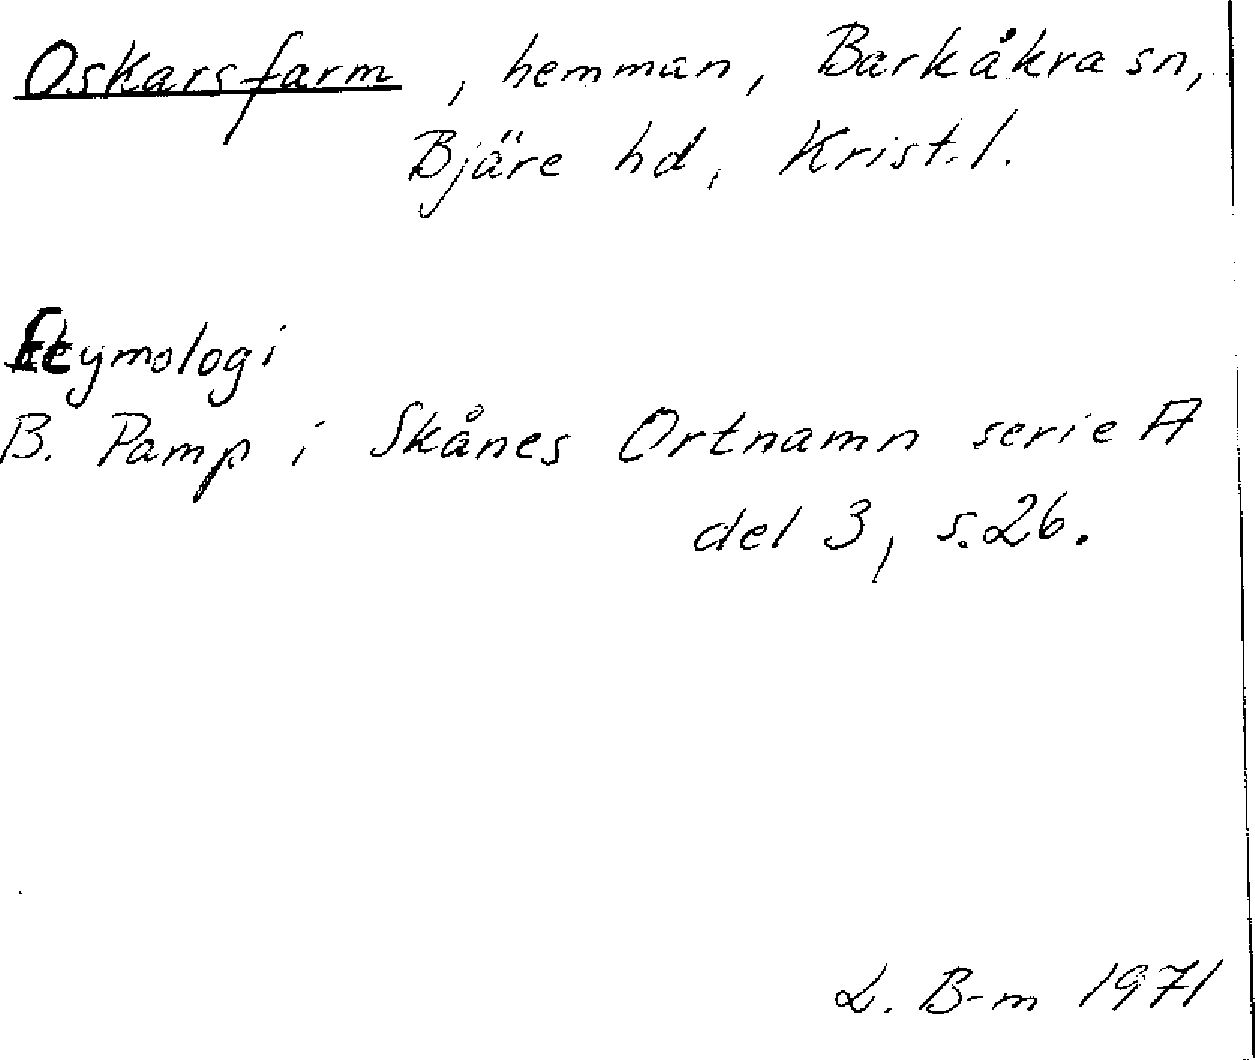 Oskarsfarm, hemman, Barkåkra sn,
Bjäre hd, Krist. l.
Etymologi
B. Pamp i Skånes Ortnamn serie A
del 3, s. 26.
L. B-m 1971